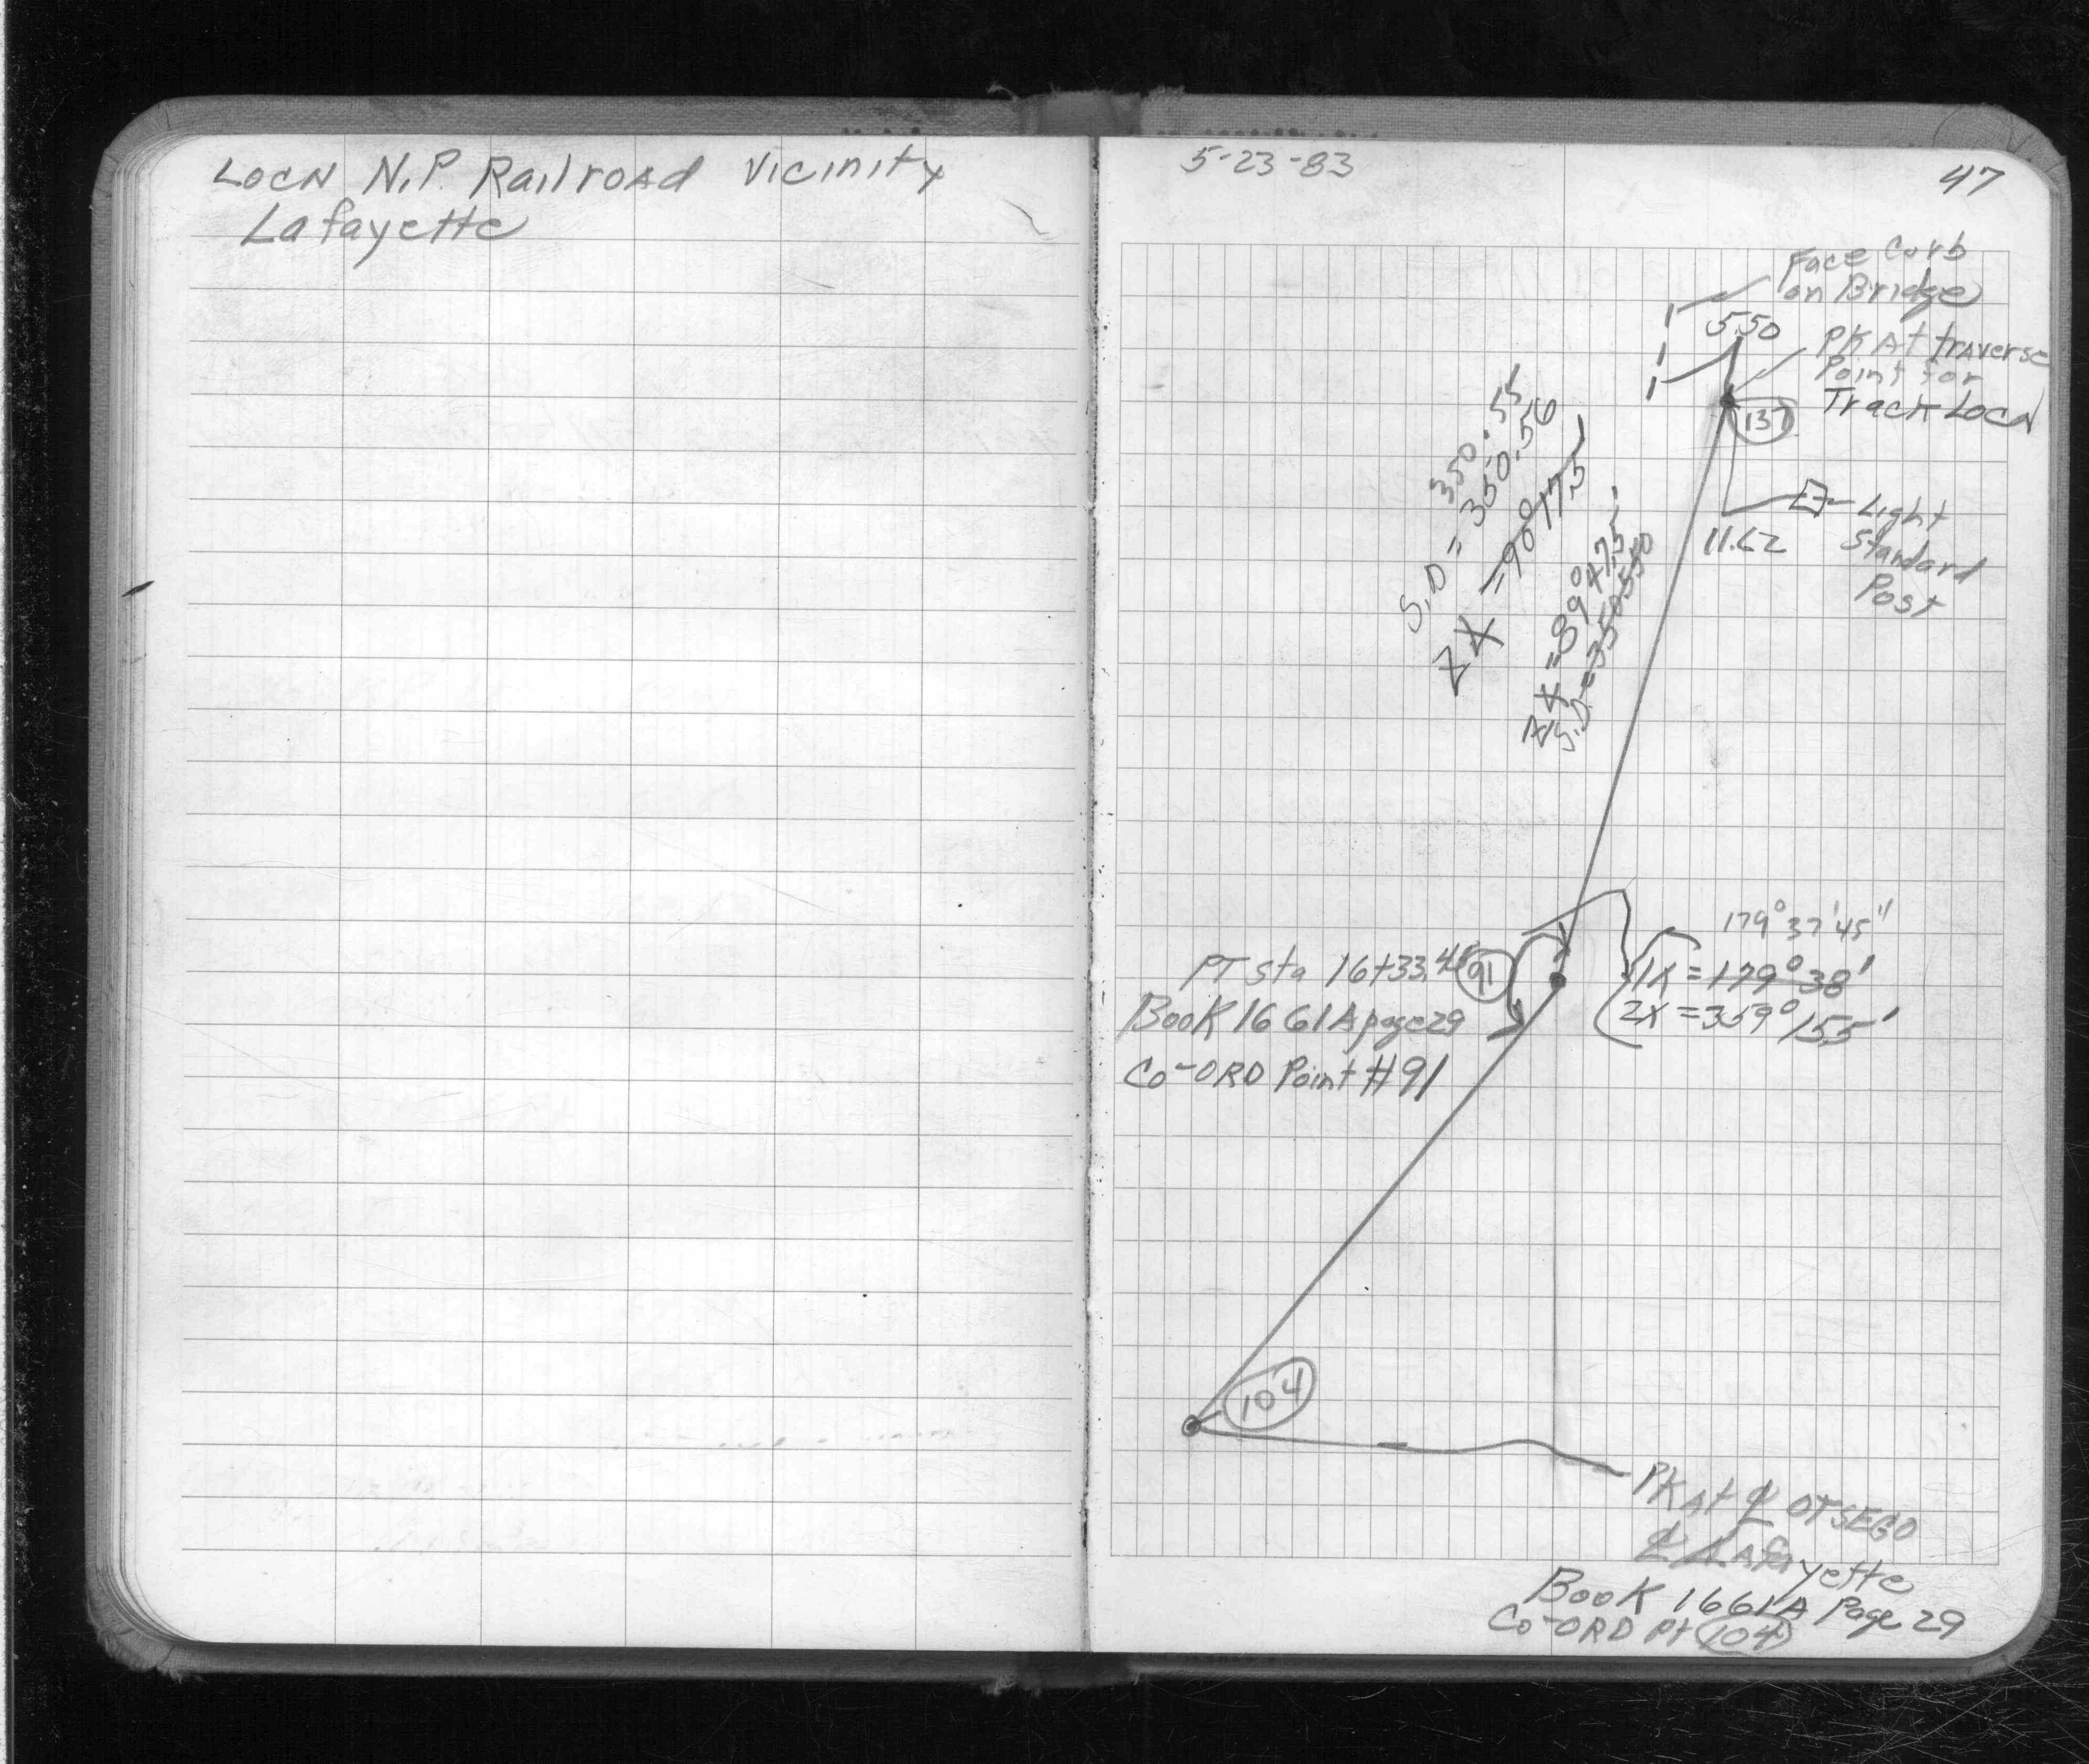 Locn N.P. Railroad Vicinity
Lafayette
5-23-83
47
Face Curb
on Bridge
5.50
PK At traverse
Point for
Track Locn
137
350.55
S.D = 350.56
Z∡ = 90°17.5'
Z∡ = 89°47.5'
S.D = 350.550
11.62
Light
Standard
Post
179°37'45"
1X = 179°38'
2X = 359°15.5'
PT sta 16+33.45
91
Book 1661A page 29
Co-ORD Point #91
104
PK At ℄ OTSEGO
℄ Lafayette
Book 1661A Page 29
Co-ORD Pt 104